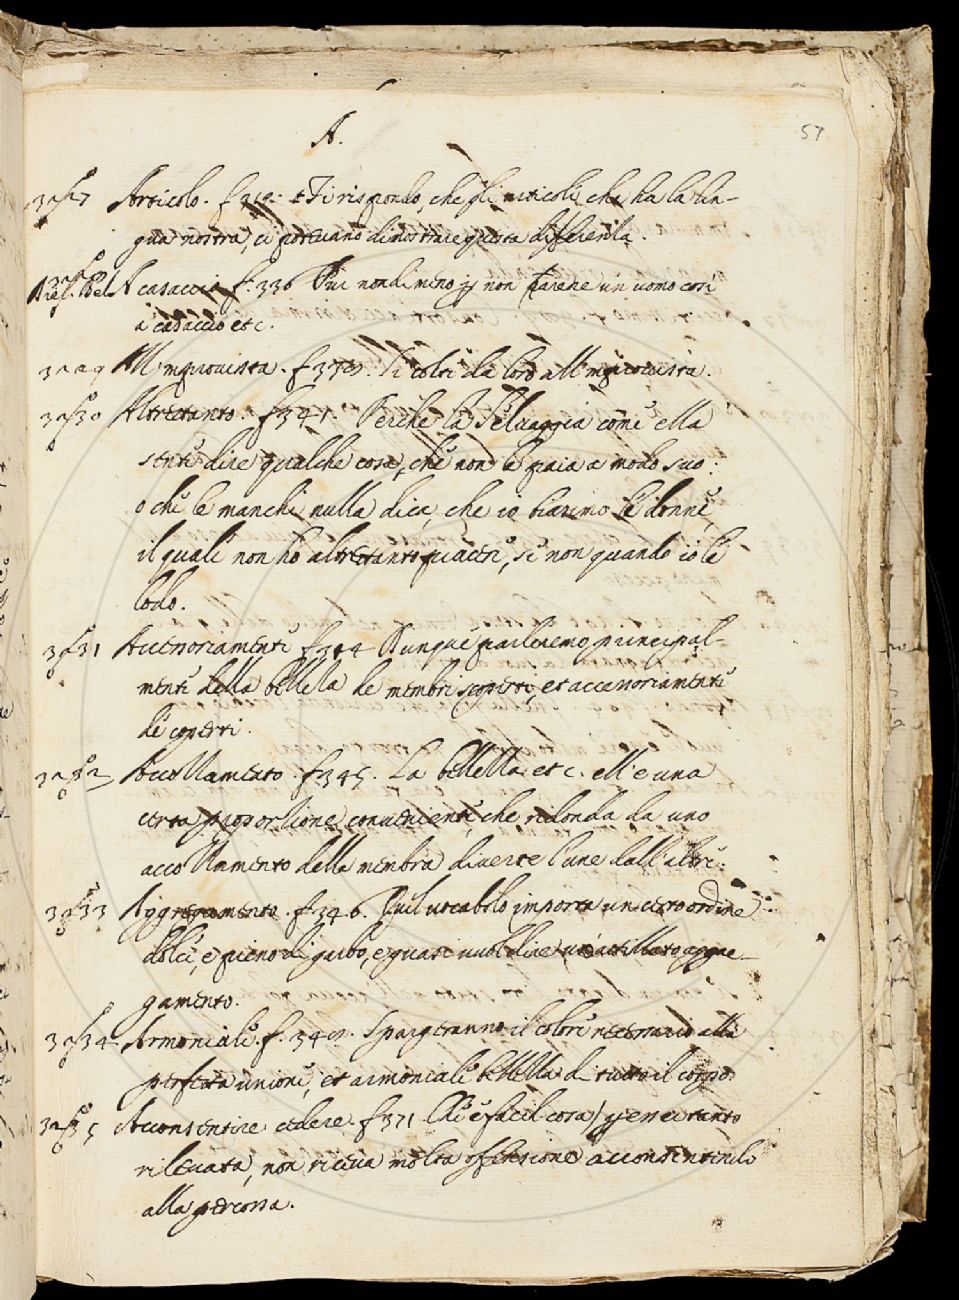 57
A.
Articolo. f 312. Ti rispondo, che gli articoli, che ha la lin-
gua nostra, ci potevano dimostrare questa differenza.
A casaccio f. 336 Pur nondimeno non un uomo così
a casaccio etc.
All'improvista. f Ti colti da loro all'improvista.
Altretanto. f 341. Perche la Selvaggia come ella
sente dire qualche cosa, che non le paia a modo suo:
o che le manchi nulla dice, che io biasimo le donne,
il quale non ho altretanto piacere, se non quando io le
lodo.
Accessoriamente f 344 Dunque parleremo principal-
mente della bellezza de membri scoperti, et accessoriamente
de coperti.
Accozzamento. f 345. La bellezza etc. ell'è una
certa proporzione conveniente, che ridonda da uno
accozzamento delle membra diverse l'une dall'altre.
Aggregamento. f 346. Quel vocabolo importa un certo ordine
dolce, e pieno di garbo, e quasi vuol dire un attillato aggre-
gamento.
Armoniale. f. Spargeranno il colore necessario alla
perfetta unione, et armoniale bellezza di tutto il corpo.
Acconsentire cedere. f 371 è facil cosa, esser tanto
rilevata, non riceva molta offensione acconsentendo
alla percossa.